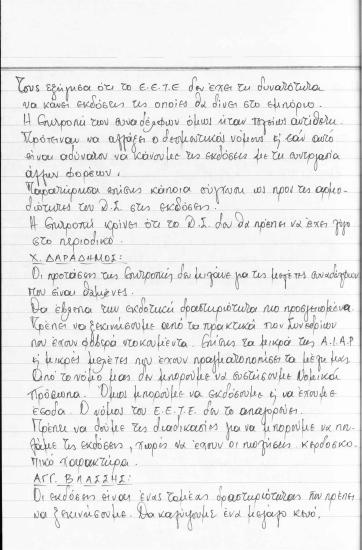 Τους εξήγησα ότι το Ε.Ε.Τ.Ε δεν έχει τη δυνατότητα
να κάνει εκδόσεις τις οποίες θα δίνει στο εμπόριο.
Η Επιτροπή των συναδέλφων όμως ήταν τελείως αντίθετη.
Πρότειναν να αλλάξει ο δεσμευτικός νόμος ή εάν αυτό
είναι αδύνατον να κάνουμε τις εκδόσεις με τη συνεργασία
άλλων φορέων.
Παρατήρησα επίσης κάποια σύγχυση ως προς τις αρμο-
διότητες του Δ.Σ στις εκδόσεις.
Η Επιτροπή κρίνει ότι το Δ.Σ. δεν θα πρέπει να έχει λόγο
στο περιοδικό.
Χ. ΔΑΡΑΔΗΜΟΣ:
Οι προτάσεις της Επιτροπής δεν μιλάνε για τις μελέτες συναδέλφων
που είναι θαμένες.
Θα έβλεπα την εκδοτική δραστηριότητα πιο προσγειωμένα.
Πρέπει να ξεκινήσουμε από τα πρακτικά των Συνεδρίων
που έχουν φοβερά ντοκουμέντα. Επίσης τα μικρά της A.I.A.P
ή μικρές μελέτες που έχουν πραγματοποιήσει τα μέλη μας.
Από το νόμο μας δεν μπορούμε να συστήσουμε Νομικά
Πρόσωπα. Όμως μπορούμε να εκδόσουμε ή να έχουμε
έσοδα. Ο νόμος του Ε.Ε.Τ.Ε δεν το απαγορεύει.
Πρέπει να δούμε τις διαδικασίες για να μπορούμε να που-
λάμε τις εκδόσεις, χωρίς να έχουν οι πωλήσεις κερδοσκο-
πικό χαρακτήρα.
ΑΓΓ. ΒΛΑΣΣΗΣ:
Οι εκδόσεις είναι ένας τομέας δραστηριότητας που πρέπει
να ξεκινήσουμε. Θα καλύψουμε ένα μεγάλο κενό,